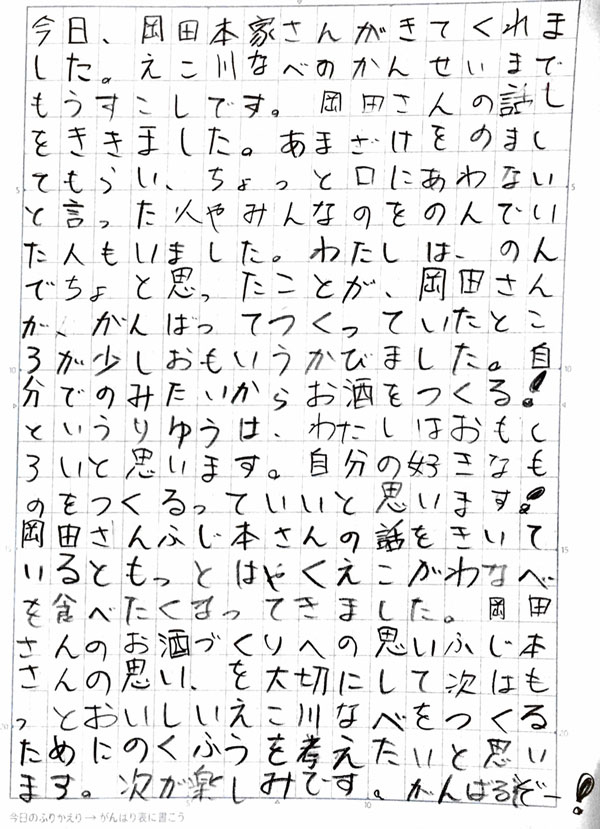 今日、岡田本家さんがきてくれま
した。えこ川なべのかんせいまで
もうすこしです。岡田さんの話し
をききました。あまざけをのまし
てもらい、ちょっと口にあわない
と言った人やみんなのをのんでい
た人もいました。わたしは、のん
でちょと思ったことが、岡田さん
が、がんばってつくっていたとこ
ろが少しおもいうかびました。自
分でのみたいからお酒をつくる!
というりゆうは、わたしはおもし
ろいと思います。自分の好きなも
のをつくるっていいと思います!
岡田さんふじ本さんの話をきいて
いるともっとはやくえこがわなべ
を食べたくまってきました。岡田
さんのお酒づくりへの思いふじ本
さんの思い、を大切にして次はも
っとおいしいえこ川なべをつくる
ためにのくふうを考えたいと思い
ます。次が楽しみです。がんばるぞー!
今日のふりかえり→がんばり表に書こう
5
5
10
10
15
15
20
20
5
10